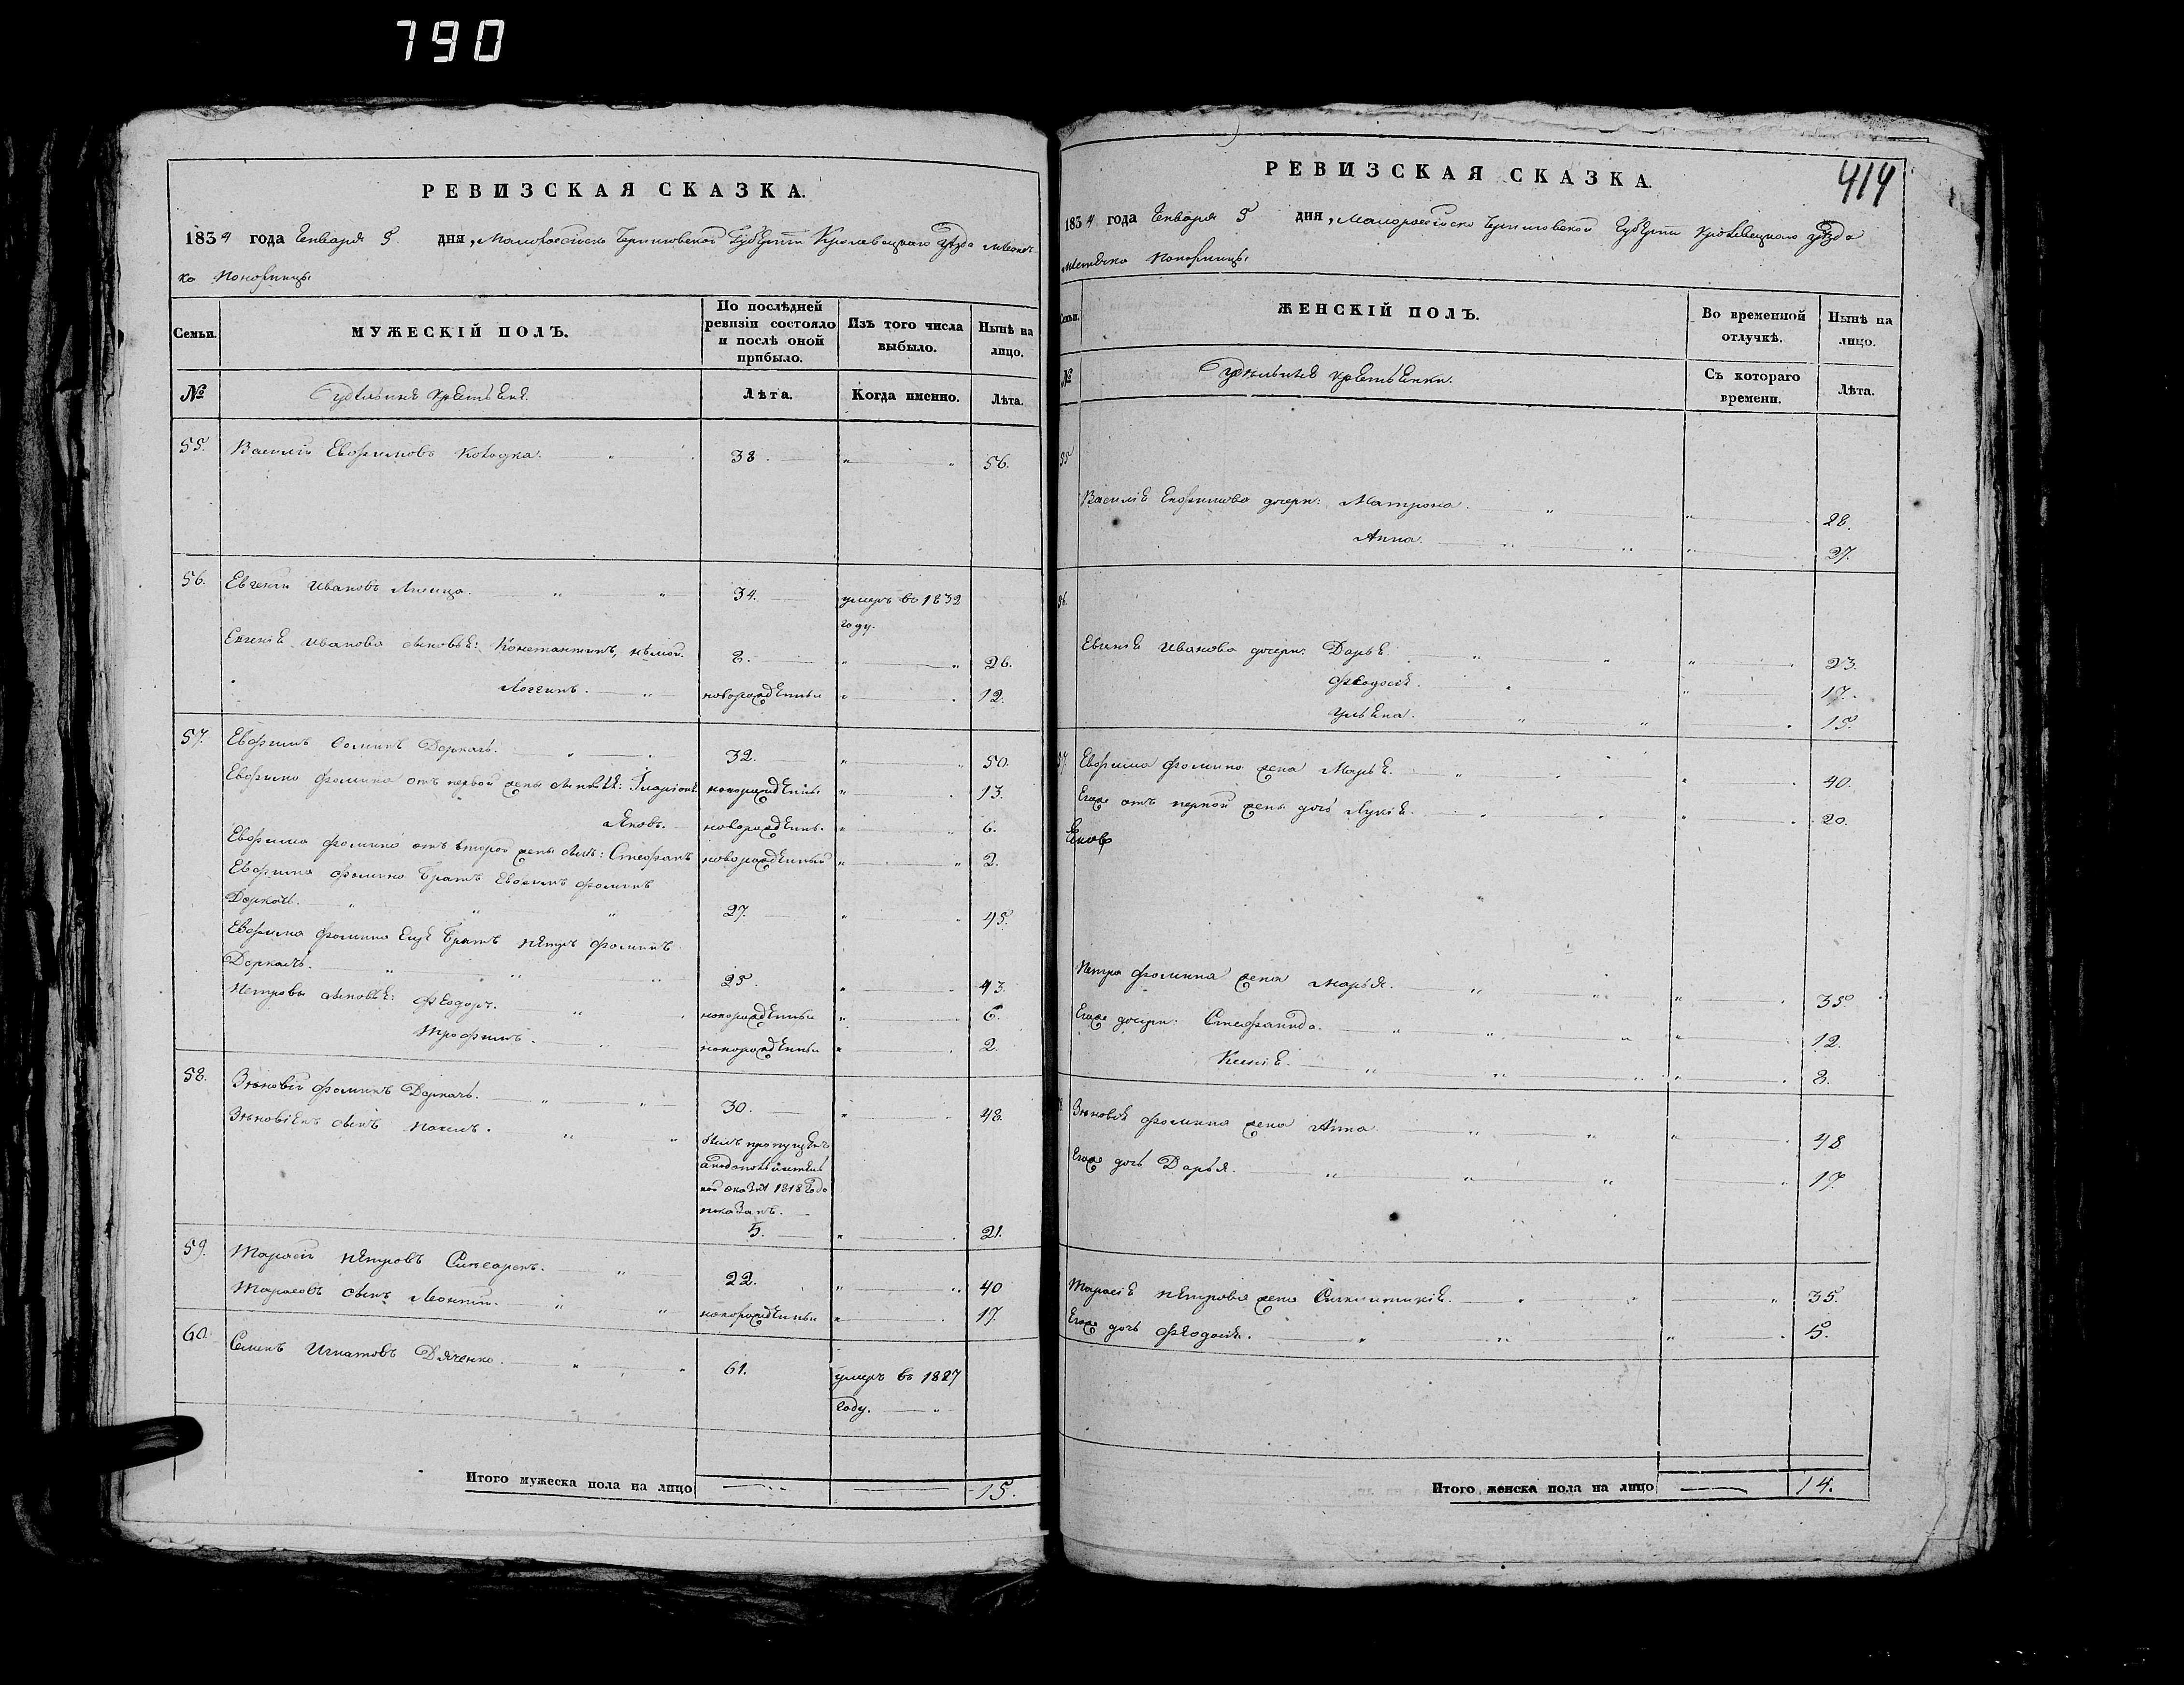 790
РЕВИЗСКАЯ СКАЗКА.
1834 года Генваря 5 дня, Малороссійско Черниговской Губерніи Кролевецкаго уѣзда мѣстеч
ка Понорницы
Семьи.
МУЖЕСКІЙ ПОЛЪ.
По послѣдней ревизіи состояло и послѣ оной прибыло.
Изъ того числа выбыло.
Нынѣ на лицо.
№
Удельные крестьяне.
Лѣта.
Когда именно.
Лѣта.
55. Василій Евфимовъ Колодка. 38. 56.
56. Евгеній Ивановъ Лисица. 34. умеръ въ 1832
году.
Евгенія Иванова сыновья: Константинъ, нѣмой. 8. 26.
Логгинъ. новорожденный 12.
57. Евфимъ Фоминъ Деркачъ. 32. 50.
Евфима Фомина отъ первой жены сыновья: Іларіонъ новорожденный 13.
Яковъ. новорожденъ. 6.
Евфима Фомина отъ второй жены сынъ: Стефанъ новорожденный 2.
Евфима Фомина братъ Фоминъ
Деркачъ. 27. 45.
Евфима Фомина еще братъ Петръ Фоминъ
Деркачъ. 25. 43.
Петровы сыновья: Феодоръ. новорожденный 6.
Трофимъ. новорожденный 2.
58. Зѣновій Фоминъ Деркачъ. 30. 48.
Зѣновіевъ сынъ
былъ пропущенъ
1818 года
показанъ.
5. 21.
59. Тарасій Петровъ 22. 40
Тарасовъ сынъ Леонтій. новорожденный 17.
60. Семенъ Игнатовъ Дяченко. 61. умеръ въ 1827
году.
Итого мужеска пола на лицо 15.
414
РЕВИЗСКАЯ СКАЗКА.
1834 года Генваря 5 дня, Малороссійско Черниговской Губерніи Кролевецкаго уѣзда
мѣстечка Понорницы
Семьи.
ЖЕНСКІЙ ПОЛЪ.
Во временной отлучкѣ.
Нынѣ на лицо.
№
Удельныя крестьянки.
Съ котораго времени.
Лѣта.
55
Василія Евфимова дочери: Матрона. 28.
Анна. 27.
56.
Евгенія Иванова дочери: Дарья. 23.
Феодосія. 17.
Ульяна. 15.
57. Евфима Фомина жена Марья. 40.
Егоже отъ первой жены дочь Лукія. 20.
Петра Фомина жена Марья. 35.
Егоже дочери: Стефанида. 12.
Ксенія. 8.
58 Зѣновія Фомина жена Анна 48
Егоже дочь Дарья. 17.
Тарасія Петрова жена 35.
Егоже дочь Феодосія. 5.
Итого женска пола на лицо 14.